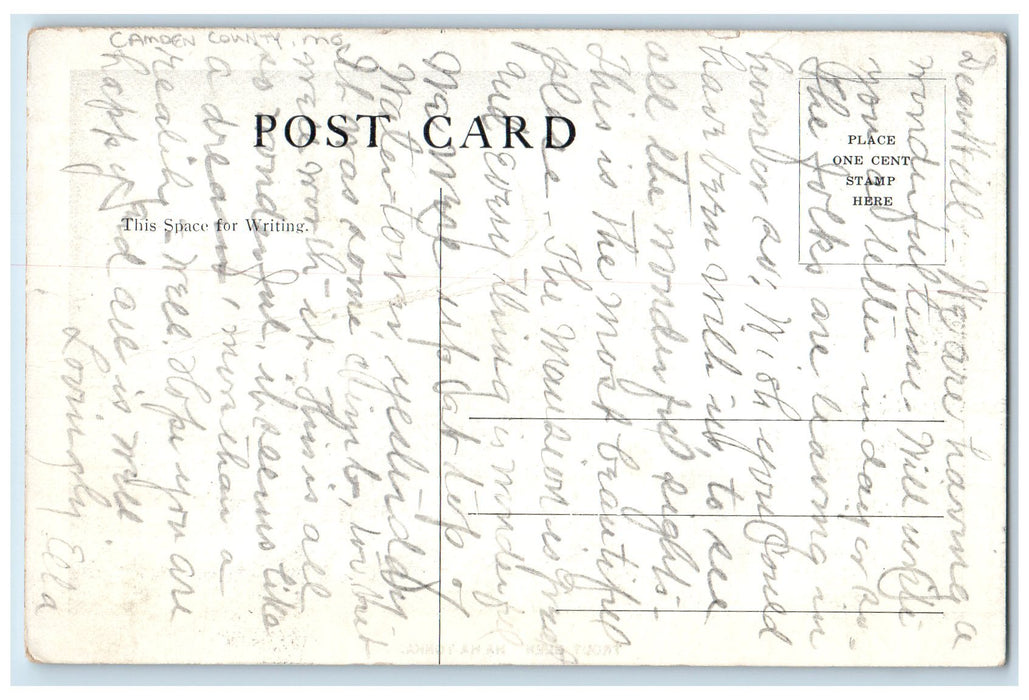 CAMDEN COUNTY, MO.
POST CARD
This Space for Writing.
PLACE
ONE CENT
STAMP
HERE
Dear Will - We are having a
wonderful time. Will write
you a letter in day or so.
The folks are leaving in
hour or so; Wish you could
have been with us, to see
all the wonderful sights -
This is the most beautiful
place - The Mansion is
and every thing is wonderful
We went up to
Water-tower, yesterday
It was some climb, but
was worth - it - This is all
so wonderful, it seems like
a dream, more than a
reality - Well. Hope you are
happy and all is well
Lovingly